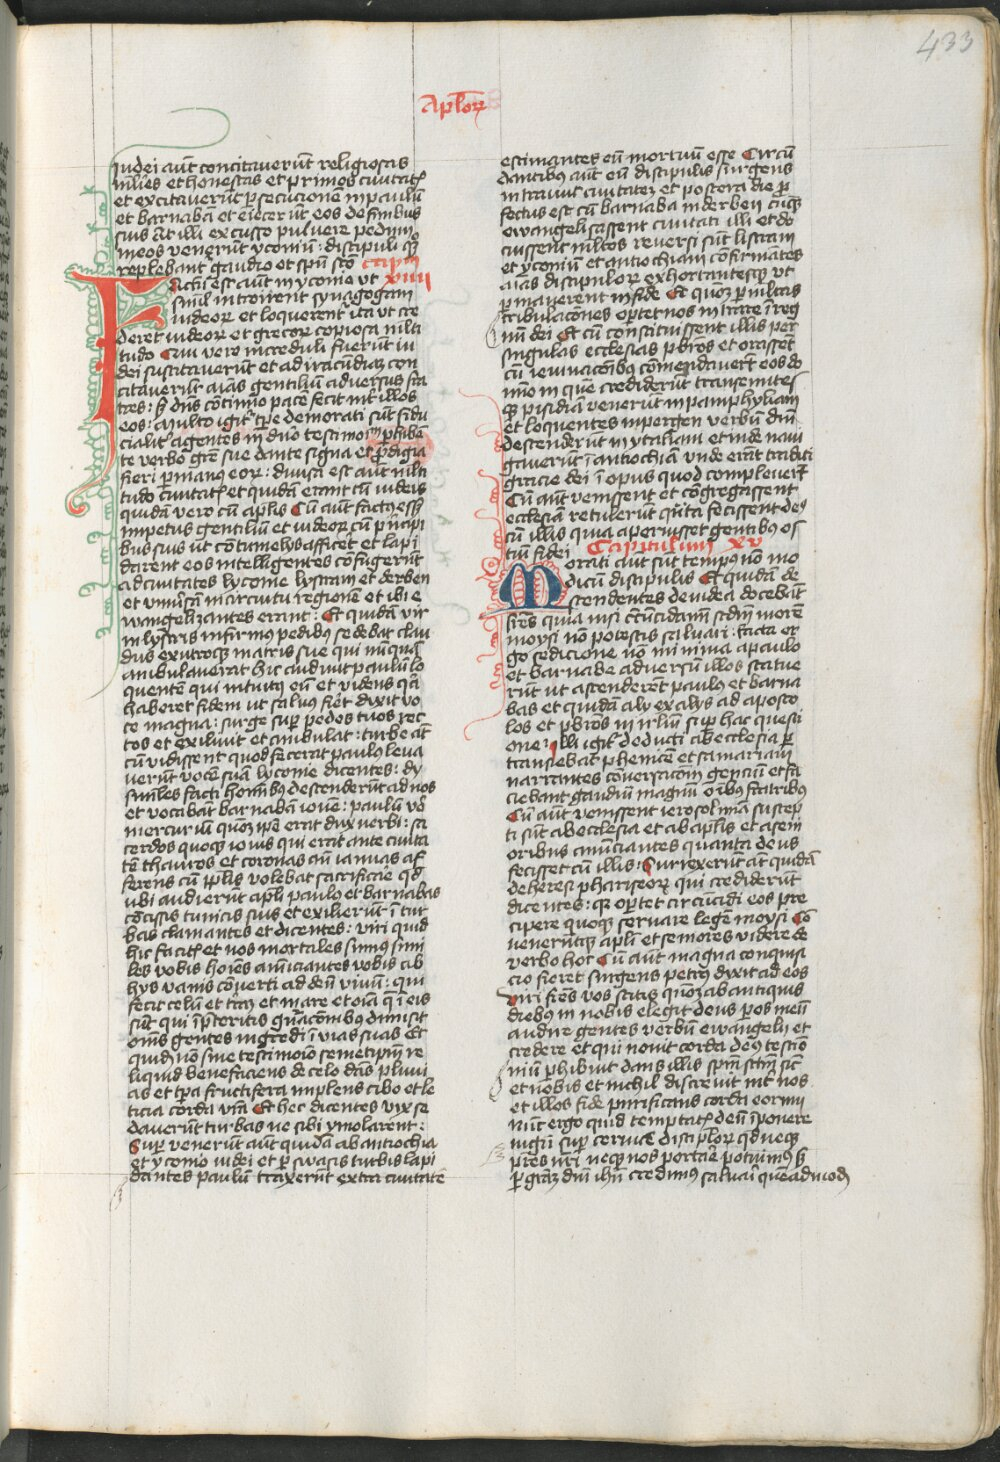 433
Aploꝝ
Iudei aūt concitaverūt religiosas
mlīes et honestas et primos civitatꝭ
et excitaverūt ꝑsecucionē in paulū
et barnabā et eiecerūt eos de finibus
suis At illi excusso pulvere pedum
in eos venerūt yconiū : discipuli qꝫ
replebant̄ gaudio et spū scō capm̄
Factū est aūt in yconio ut xiiii
simul introirent synagogam
iudeoꝝ et loquerent̄ ita ut cre
deret iudeoꝝ et grecoꝝ copiosa mlti
tudo Qui vero increduli fuerūt iu
dei suscitaverūt et ad iracūdiaꝫ con
citaverūt aīas gentiliū adversus fra
tres : sꝫ dn̄s cōtinuo pacē fecit int̄ illos
eos : Multo igit᷑ tp̄e demorati sūt fidu
cialit᷑ agentes in dn̄o testimoīm ꝑhibēn
te verbo grē sue dante signa et ꝓdigia
fieri ꝑ manus eoꝝ : divisa est aūt mlti
tudo civitatꝭ et quidā erant cū iudeis
quidā vero cū aplis Cū aūt factꝰ essꝫ
impetus gentiliū et iudeoꝝ cū pͥncipi
bus suis ut cōtumelijs afficēt et lapi
darent eos intelligentes cōfugerūt
ad civitates lyconie lystram et derben
et univ̄sā in circuitu regionē et ibi e
wangelizantes erant : Et quidā vir
in lystris infirmꝰ pedibꝰ sedebat clau
dus ex utero matris sue qui nūquā
ambulaverat hic audivit paulū lo
quentē qui intuitꝰ eū et videns qͥa
haberet fidem ut salvus fiēt dixit vo
ce magna : surge sup̄ pedes tuos rec
tos et exilivit et ambulat : turbe aūt
cū vidissent quod fecerat paulꝰ leva
verūt vocē suā lyconie dicentes : dij
similes facti hominibꝰ descenderūt ad nos
et vocabāt barnabā iovē : paulū vō
mercuriū quoꝫ ip̄e erat dux verbi : sa
cerdos quoqꝫ iovis qui erat ante civita
tē thauros et coronas an̄ ianuas af
ferens cū ip̄lis volebat sacrificare qd
ubi audierūt apli paulꝰ et barnabas
cōcissis tunicis suis et exilierūt ī tur
bas clamantes et dicentes : viri quid
hic facitꝭ et nos mortales sumus simi
les vobis hoīes anūciantes vobis ab
hijs vanis cōverti ad deū vivū : qui
fecit celū et trāꝫ et mare et oīa q̄ ī eis
sūt qui ī p̄teritis gn̄acōnibꝰ dimisit
om̄s gentes ingredi ī vias suas Et
quidꝫ nō sine testimonio semetipm̄ re
liquid benefaciens de celo dās pluvi
as et tp̄a fructifera implens cibo et le
ticia corda vr̄a Et hec dicentes vix se
daverūt turbas ne sibi ymolarent :
Sup̄ venerūt aūt quidā ab antiochia
et yconio iudei et ꝑswasis turbis lapi
dantes paulū traxerūt extra civitatē
estimantes eū mortuū esse Circū
dantibus aūt eū discipulis surgens
intravit civitatē et postera die ꝓ
fectus est cū barnaba in derben cūqꝫ
ewangelisassent civitati illi et do
cuissent mltos reversi sūt listram
et yconiū et antiochiam cōfirmātes
aīas discipuloꝝ exhortantesqꝫ ut
ꝑmanerent in fide Et quoꝫ ꝑ mltas
tribulacōnes oꝑtet nos intrare ī reg
nū dei Et cū constituissent illis per
singulas ecclesias p̄bros et orassēt
cū ieiunacōibꝰ cōmendaverūt eos do
mino in quē crediderūt transeuntes
qꝫ pisidiā venerūt in pamphyliam
et loquentes in pergen verbū dn̄i
descenderūt in ytaliam et inde navi
gaverūt ī antiochiā unde erāt traditi
gracie dei ī opus quod compleverūt
Cū aūt venissent et cōgregassent
ecclesiā retulerūt qn̄ta fecissent deꝰ
cū illis quia aperuisset gentibꝰ os
tiū fidei Capitulum xv
Morati aūt sūt tempꝰ nō mo
dicū discipulis Et quidā de
scendentes de iudea docebāt
frēs quia nisi circūcidamī scdm̄ morē
moysi nō potestis salvari : facta er
go sedicione nō minima a paulo
et barnabe adversū illos statue
rūt ut ascenderēt paulꝰ et barna
bas et quidā alij ex alijs ad aposto
los et p̄bros in irl̄m sup̄ hac questi
one : Illi igit᷑ deducti ab ecclesia ꝑ
transiebāt phenicē et samariam
narrantes cōversacōm genciū et fa
ciebant gaudiū magnū oībꝰ fratribꝰ
Cū aūt venissent ierosolimā suscep
ti sūt ab ecclesia et ab aplis et a seni
oribus anūciantes quanta deus
fecisset cū illis : Surrexerūt aūt quidā
de heresi phariseoꝝ qui crediderūt
dicentes : qꝫ oꝑtet circūcidi eos pre
cipere quoqꝫ servare legē moysi Cō
venerūtqꝫ apli et seniores videre de
verbo hoc Cū aūt magna conquisi
cio fieret surgens petrꝰ dixit ad eos
Viri frēs vos scitis quoꝫ ab antiquis
diebꝰ in nobis elegit deus ꝑ os meū
audire gentes verbū ewangelij et
credere et qui novit corda deꝰ testīo
niū ꝑhibuit dans illis spm̄ sctm̄ sic̄
et nobis et nichil discrevit int̄ nos
et illos fide purificans corda eorum
nūc ergo quid temptatꝭ deū īponere
iugū sup̄ cervicē discipl̄oꝝ qd neqꝫ
pr̄es nr̄i neqꝫ nos portare potuimꝰ sꝫ
ꝑ grāꝫ dn̄i ih̄u credimus salvari quēadmodꝫ